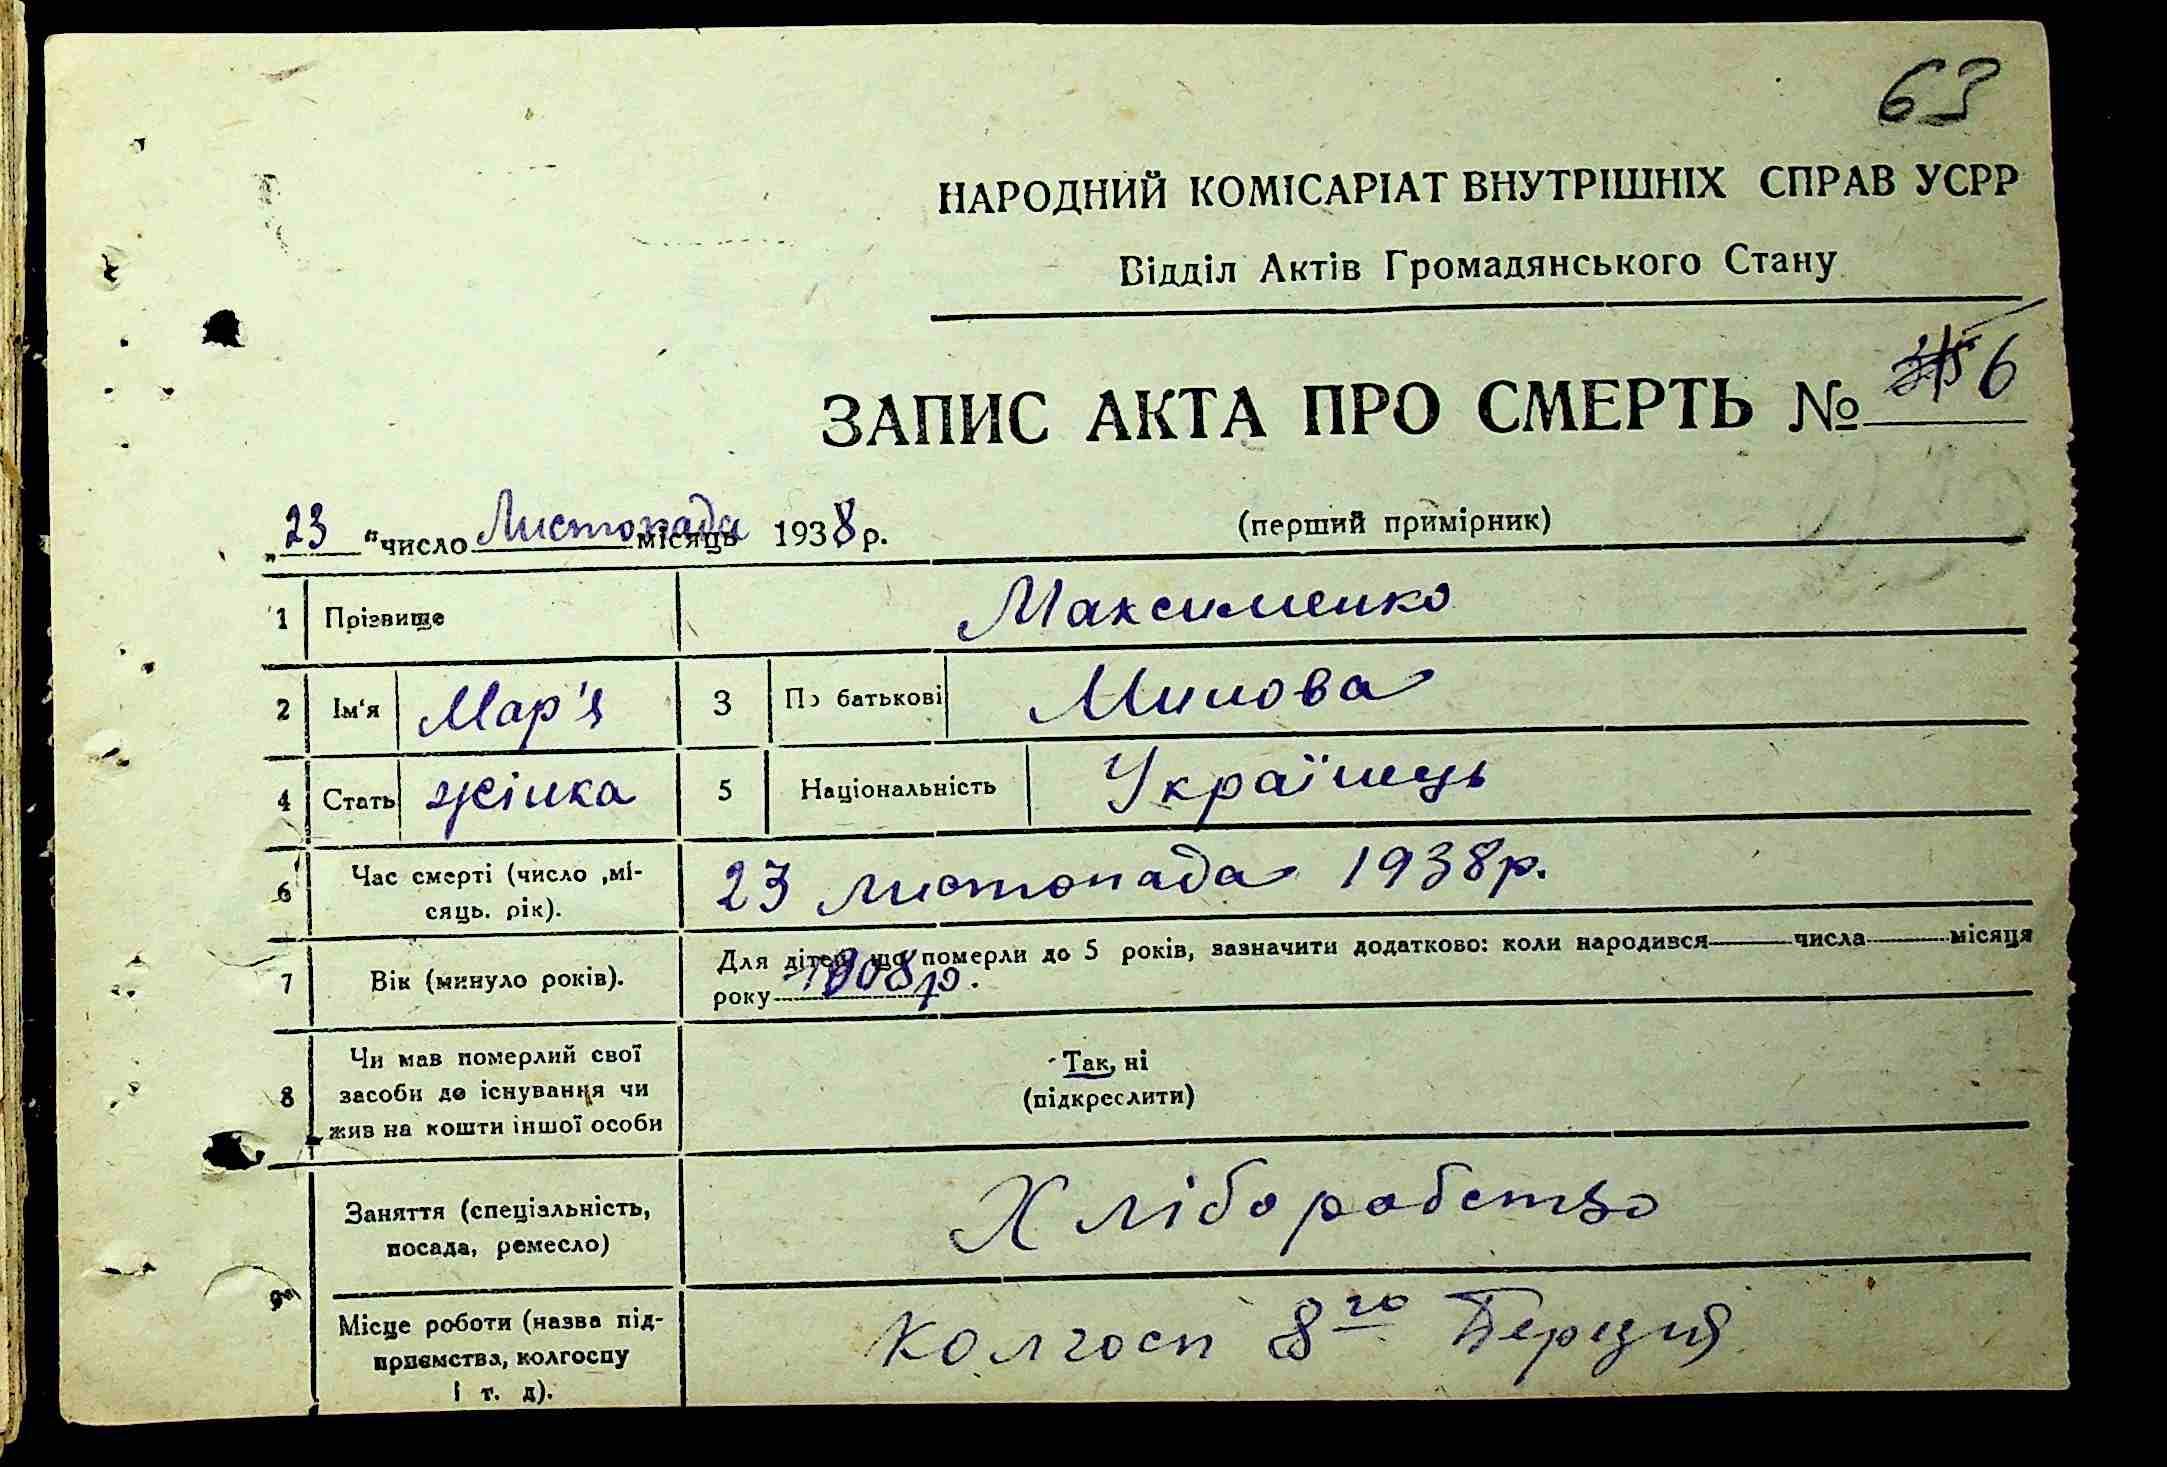 63
НАРОДНИЙ КОМІСАРІАТ ВНУТРІШНІХ СПРАВ УСРР
Відділ Актів Громадянського Стану
ЗАПИС АКТА ПРО СМЕРТЬ № 6
„23 “ число Листопада місяць 1938 р.
(перший примірник)
1 Прізвище Максименко
2 Ім'я Мар'я 3 По батькові Минова
4 Стать жінка 5 Національність Українець
6 Час смерті (число ,мі-
сяць. рік).
23 листопада 1938р.
7 Вік (минуло років).
Для дітей що померли до 5 років, зазначити додатково: коли народився числа місяця
року 1908р.
8 Чи мав померлий свої
засоби до існування чи
жив на кошти іншої особи
Так, ні
(підкреслити)
9 Заняття (спеціальність,
посада, ремесло)
Хліборобство
Місце роботи (назва під-
приємства, колгоспу
і т. д).
Колгосп 8го Березня